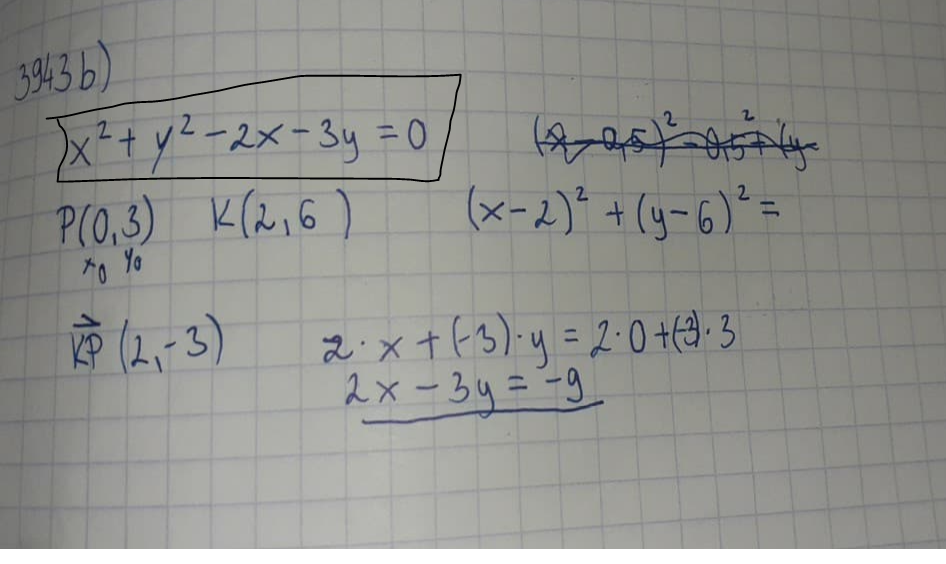 3943 b)
x² + y² - 2x - 3y = 0
(x - 0,5)² - 0,5² + (y
P(0,3) K(2,6) (x-2)² + (y-6)² =
x₀ y₀
KP⃗ (2,-3) 2·x + (-3)·y = 2·0 + (-3)·3
2x - 3y = -9